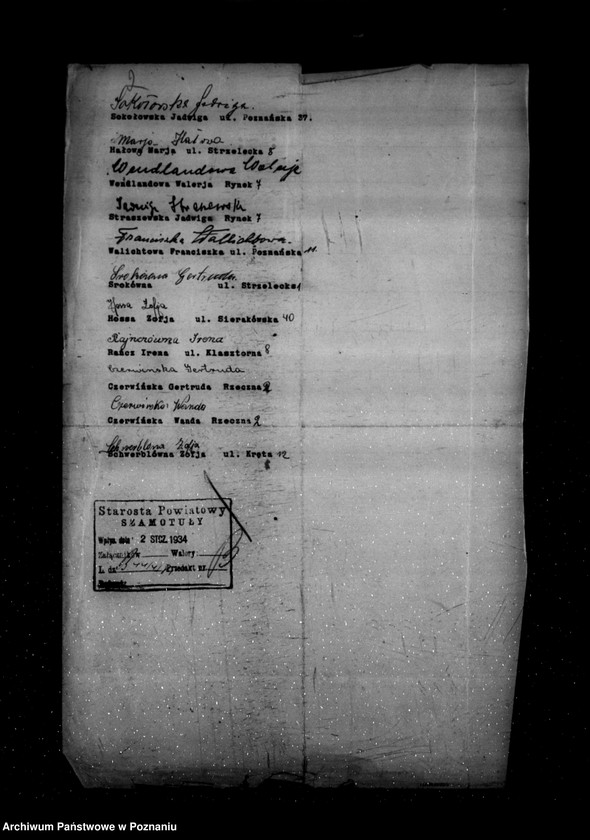 2
Sokołowska Jadwiga.
Sokołowska Jadwiga ul. Poznańska 37.
Marja Hałowa
Hałowa Marja ul. Strzelecka 8
Wendlandowa Walerja
Wendlandowa Walerja Rynek 7
Jadwiga Straszewska
Straszewska Jadwiga Rynek 7
Franciszka Wallichtowa.
Walichtowa Franciszka ul. Poznańska 11.
Gertruda
Srokówna ul. Strzelecka
Zofja
Hossa Zofja ul. Sierakówska 40
Rajnerówna Irena
Irena ul. Klasztorna 8
Czerwińska Gertruda
Czerwińska Gertruda Rzeczna 2
Czerwińska Wanda
Czerwińska Wanda Rzeczna 2
Zofja
Schwerblówna Zofja ul. Kręta 12
Starosta Powiatowy
SZAMOTUŁY
Wpłyn. dnia 2 STCZ. 1934
Załączników Walory:
L. dz.
Archiwum Państwowe w Poznaniu